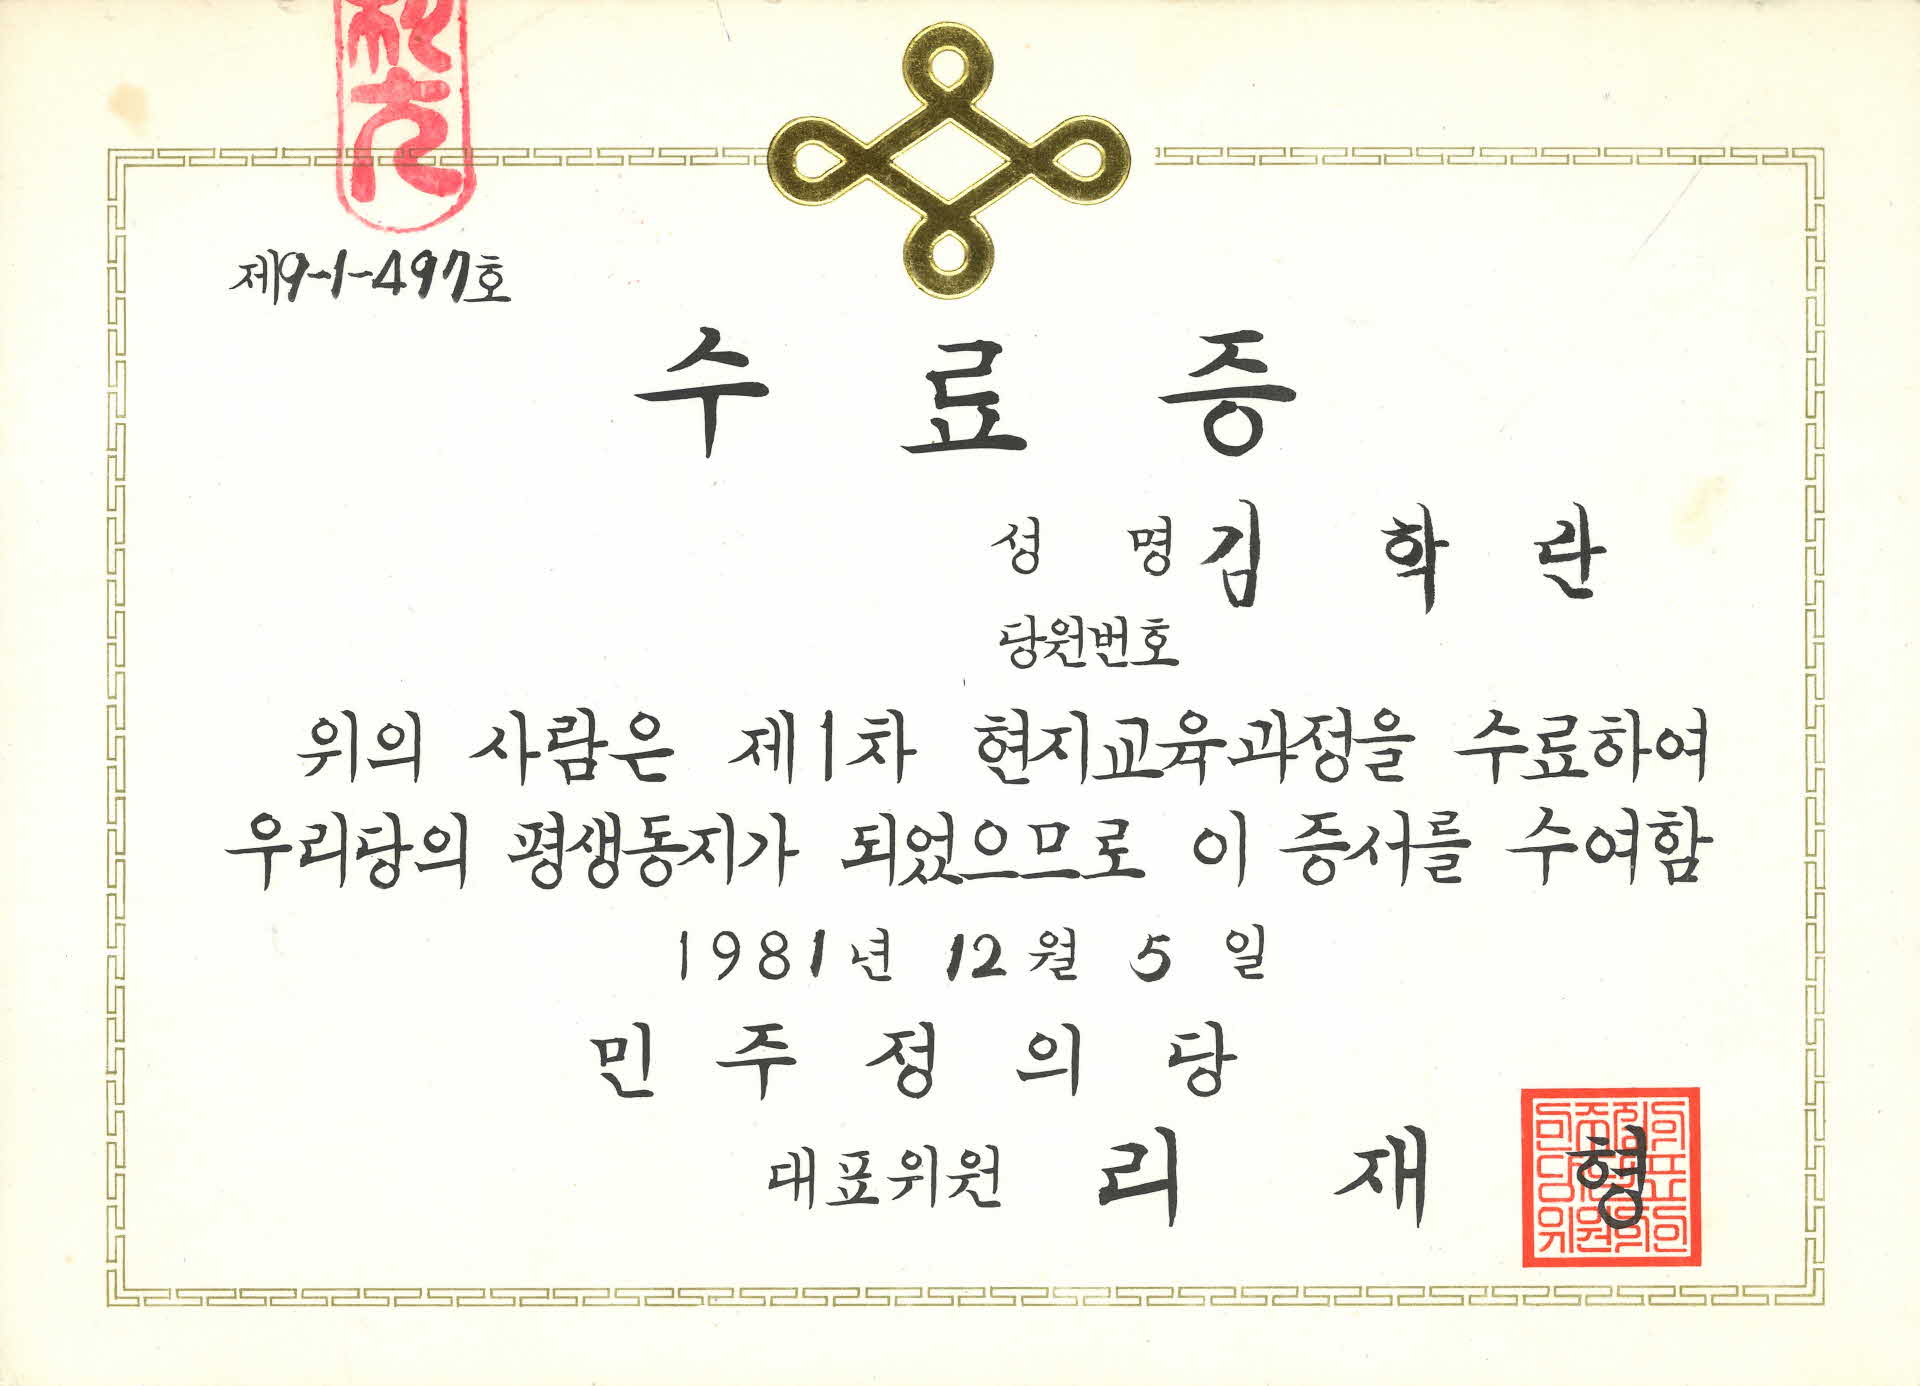 제9-1-497호
수료증
성명 김학관
당원번호
위의 사람은 제1차 현지교육과정을 수료하여
우리당의 평생동지가 되었으므로 이 증서를 수여함
1981년 12월 5일
민주정의당
대표위원 리재형